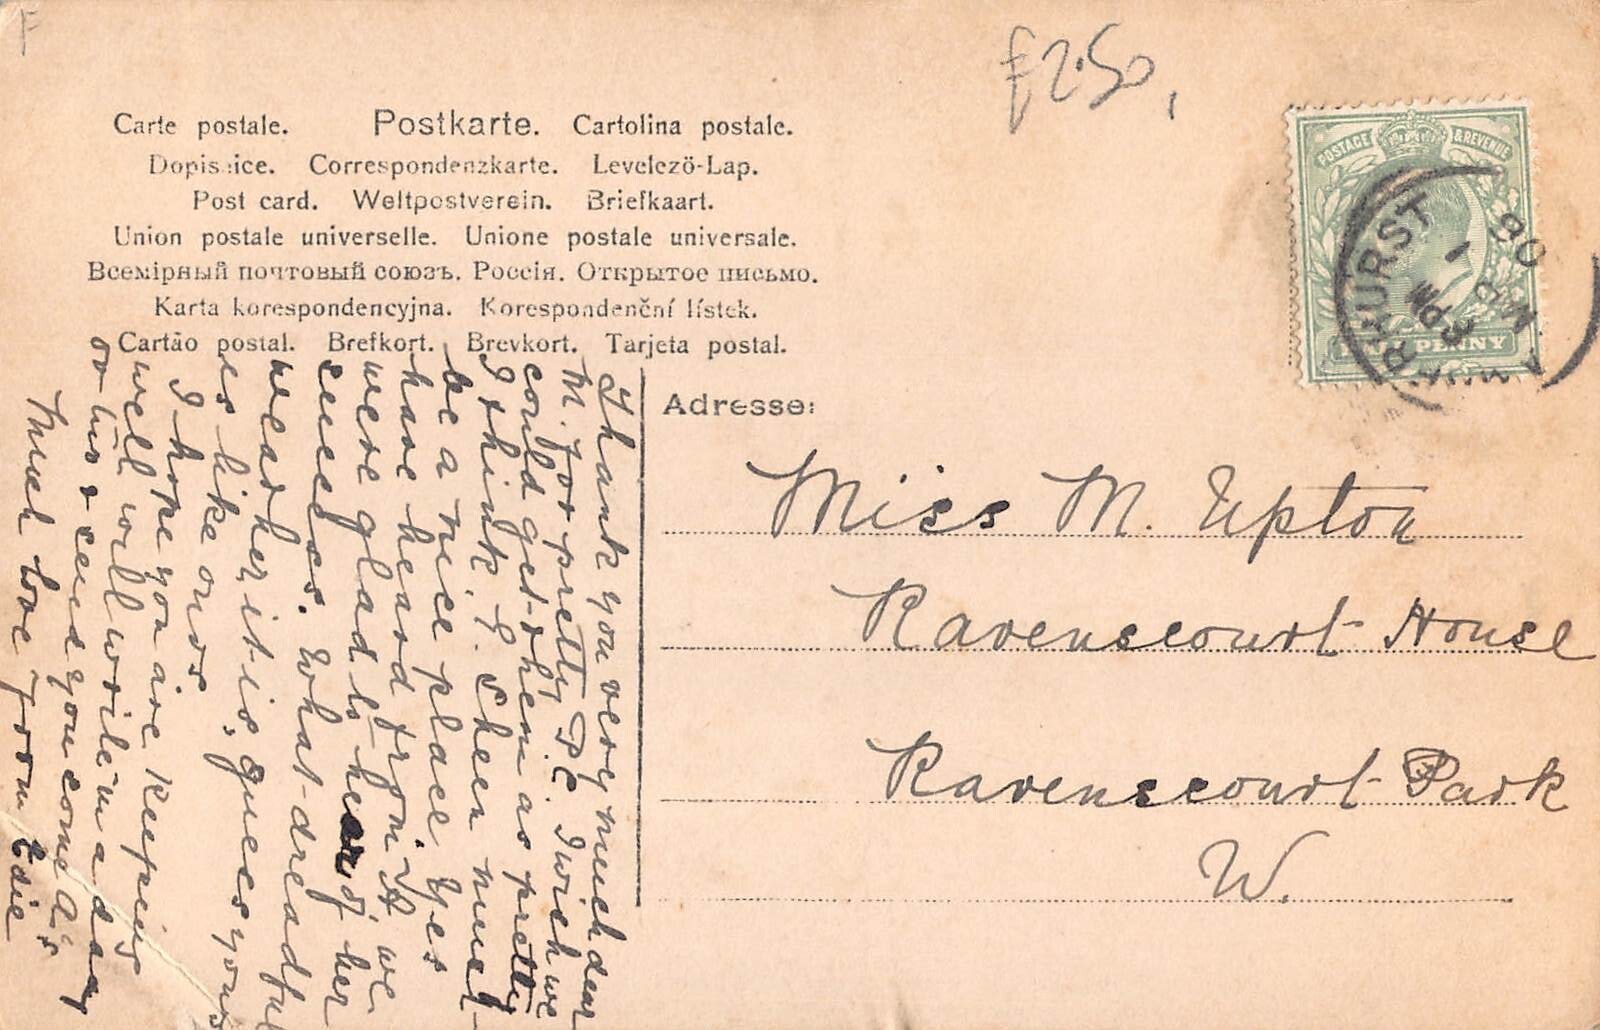 F
£2.50,
Carte postale. Postkarte. Cartolina postale.
Dopisnice. Correspondenzkarte. Levelezö-Lap.
Post card. Weltpostverein. Briefkaart.
Union postale universelle. Unione postale universale.
Всемірный почтовый союзъ. Россія. Открытое письмо.
Karta korespondencyjna. Korespondenční lístek.
Cartão postal. Brefkort. Brevkort. Tarjeta postal.
POSTAGE & REVENUE
HALFPENNY
AMHERST
MR 1
08
Adresse:
Miss M. Upton
Ravenscourt House
Ravenscourt Park
W.
Thank you very much dear
M. for pretty P.C. I wish we
could get them as pretty
I think E. Sheen must
be a nice place. Yes
have heard from A we
were glad to hear of her
success. What dreadful
weather it is, guess yours
is like ours
I hope you are keeping
well will write in a day
or two & send you some
Much love from Edie